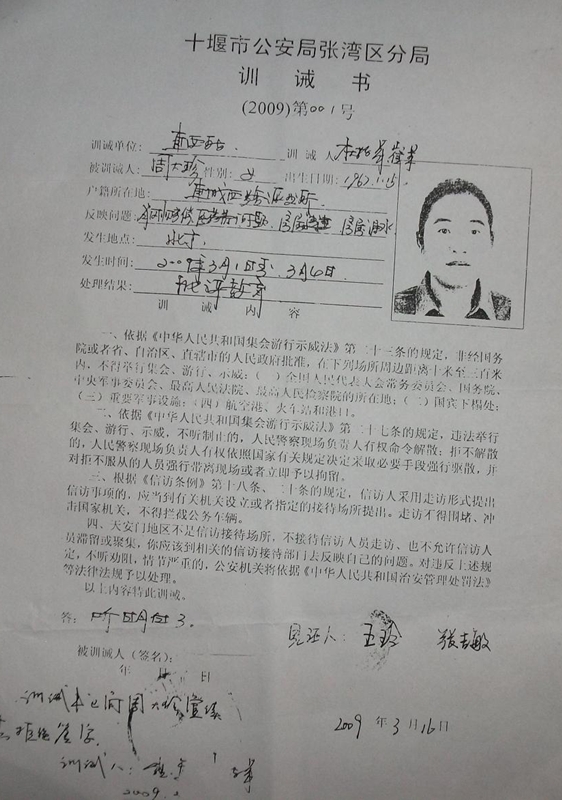 十堰市公安局张湾区分局
训诫书
(2009)第001号
训诫单位: 训诫人
被训诫人: 周大珍 性别: 女 出生日期: 1967.11.15.
户籍所在地:
反映问题:
发生地点: 北京.
发生时间: 2009年3月1日至3月6日.
处理结果: 批评教育
训诫内容
一、依据《中华人民共和国集会游行示威法》第二十三条的规定，非经国务
院或者省、自治区、直辖市的人民政府批准，在下列场所周边距离十米至三百米
内，不得举行集会、游行、示威:(一)全国人民代表大会常务委员会、国务院、
中央军事委员会、最高人民法院、最高人民检察院的所在地;(二)国宾下榻处;
(三)重要军事设施;(四)航空港、火车站和港口。
二、依据《中华人民共和国集会游行示威法》第二十七条的规定，违法举行
集会、游行、示威，不听制止的，人民警察现场负责人有权命令解散;拒不解散
的，人民警察现场负责人有权依照国家有关规定决定采取必要手段强行驱散，并
对拒不服从的人员强行带离现场或者立即予以拘留。
三、根据《信访条例》第十八条、二十条的规定，信访人采用走访形式提出
信访事项的，应当到有关机关设立或者指定的接待场所提出。走访不得围堵、冲
击国家机关，不得拦截公务车辆。
四、天安门地区不是信访接待场所，不接待信访人员走访、也不允许信访人
员滞留或聚集，你应该到相关的信访接待部门去反映自己的问题。对违反上述规
定，不听劝阻，情节严重的，公安机关将依据《中华人民共和国治安管理处罚法》
等法律法规予以处理。
以上内容特此训诫。
答: 听明白了.
见证人: 王玲 张吉敏
被训诫人(签名):
年 月 日
训诫书已向周大珍宣读
拒绝签字
训诫人:
2009.
2009年3月16日